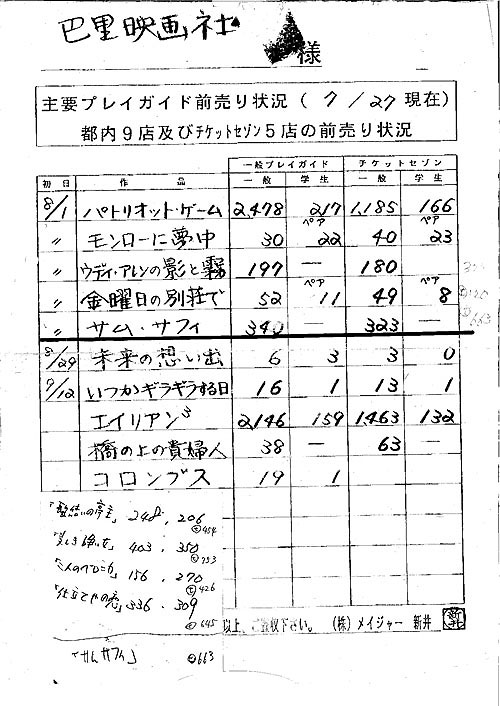 巴里映画社
様
主要プレイガイド前売り状況 ( 7 / 27 現在)
都内9店及びチケットセゾン5店の前売り状況
一般プレイガイド チケットセゾン
初日 作品 一般 学生 一般 学生
8/1 パトリオット・ゲーム 2,478 217 1,185 166
〃 モンローに夢中 30 ペア 22 40 ペア 23
〃 ウディ・アレンの影と霧 197 — 180
〃 金曜日の別荘で 52 ペア 11 49 ペア 8
〃 サム・サフィ 340 — 323 —
8/29 未来の想い出 6 3 3 0
9/12 いつかギラギラする日 16 1 13 1
エイリアン3 2,146 159 1,463 132
橋の上の貴婦人 38 — 63 —
コロンブス 19 1
「髪結いの亭主」 248, 206
計454
「美しき諍い女」 403, 350
計753
「二人のベロニカ」 156, 270
計426
「仕立て屋の恋」 336, 309
計645
以上、ご査収下さい。 (株)メイジャー 新井
「サム サフィ」 計663